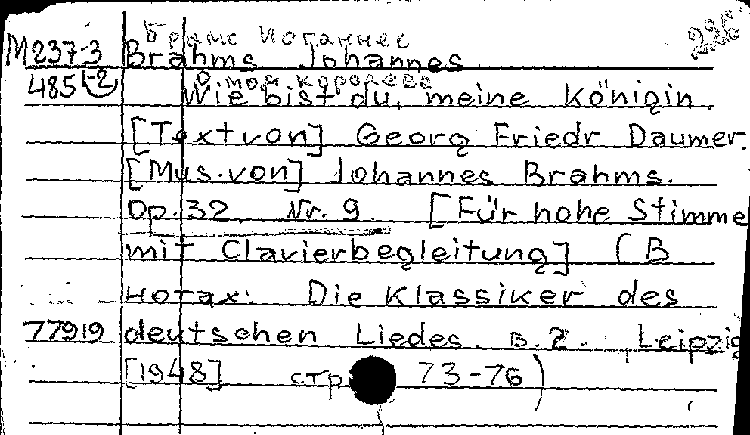 Брамс Иоганнес
236
M237-3 Brahms Johannes
485 L-2 О моя королева
Wie bist du, meine Königin.
[Text von] Georg Friedr Daumer.
[Mus. von] Johannes Brahms.
Op. 32. Nr. 9. [Für hohe Stimme
mit Clavierbegleitung] (В
нотах: Die Klassiker des
77919 deutschen Liedes. B. 2. Leipzig
[1948] стр 73-76)